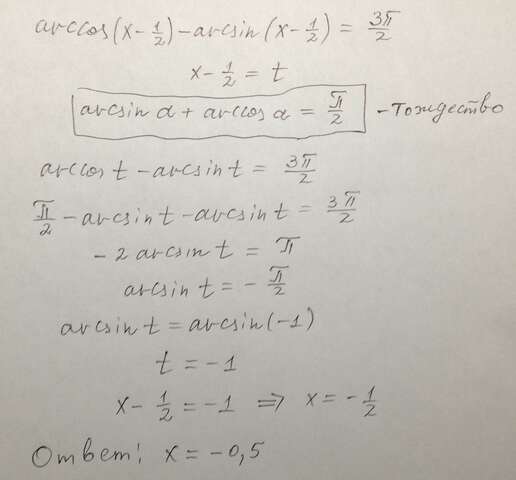 arccos(x-1/2)-arcsin(x-1/2) = 3π/2
x-1/2 = t
arcsin α + arccos α = π/2 - тождество
arccos t - arcsin t = 3π/2
π/2 - arcsin t - arcsin t = 3π/2
-2 arcsin t = π
arcsin t = -π/2
arcsin t = arcsin(-1)
t = -1
x-1/2 = -1 ⇒ x = -1/2
Ответ: x = -0,5